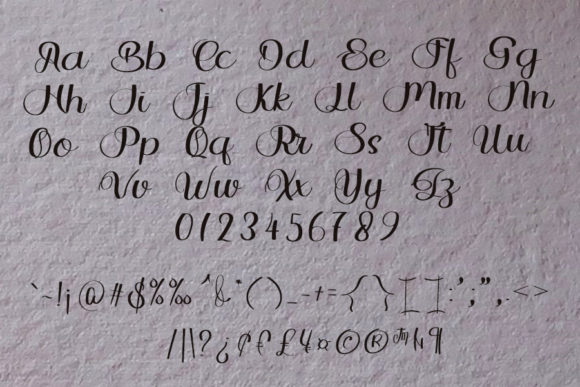 Aa Bb Cc Dd Ee Ff Gg
Hh Ii Jj Kk Ll Mm Nn
Oo Pp Qq Rr Ss Tt Uu
Vv Ww Xx Yy Zz
0 1 2 3 4 5 6 7 8 9
`~!¡@#$%‰^&*()_-+={}[]:';",.<>
/|\?¿¢€£¥¤©®™¶